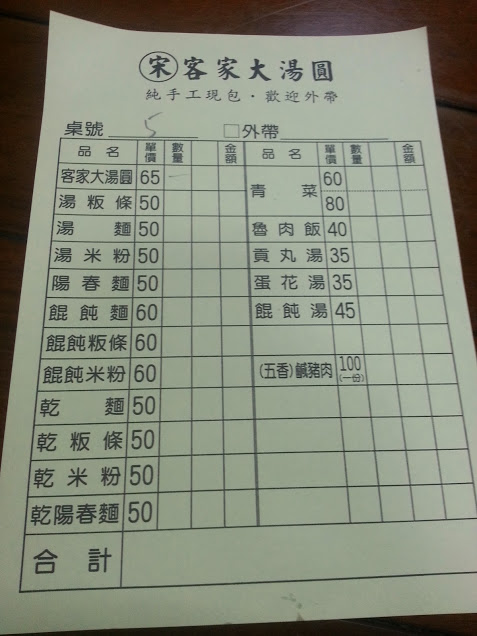 宋 客家大湯圓
純手工現包・歡迎外帶
桌號 5 □外帶
品名 單價 數量 金額 品名 單價 數量 金額
客家大湯圓 65 一 青菜 60
湯粄條 50 80
湯麵 50 魯肉飯 40
湯米粉 50 貢丸湯 35
陽春麵 50 蛋花湯 35
餛飩麵 60 餛飩湯 45
餛飩粄條 60
餛飩米粉 60 (五香)鹹豬肉 100(一份)
乾麵 50
乾粄條 50
乾米粉 50
乾陽春麵 50
合計